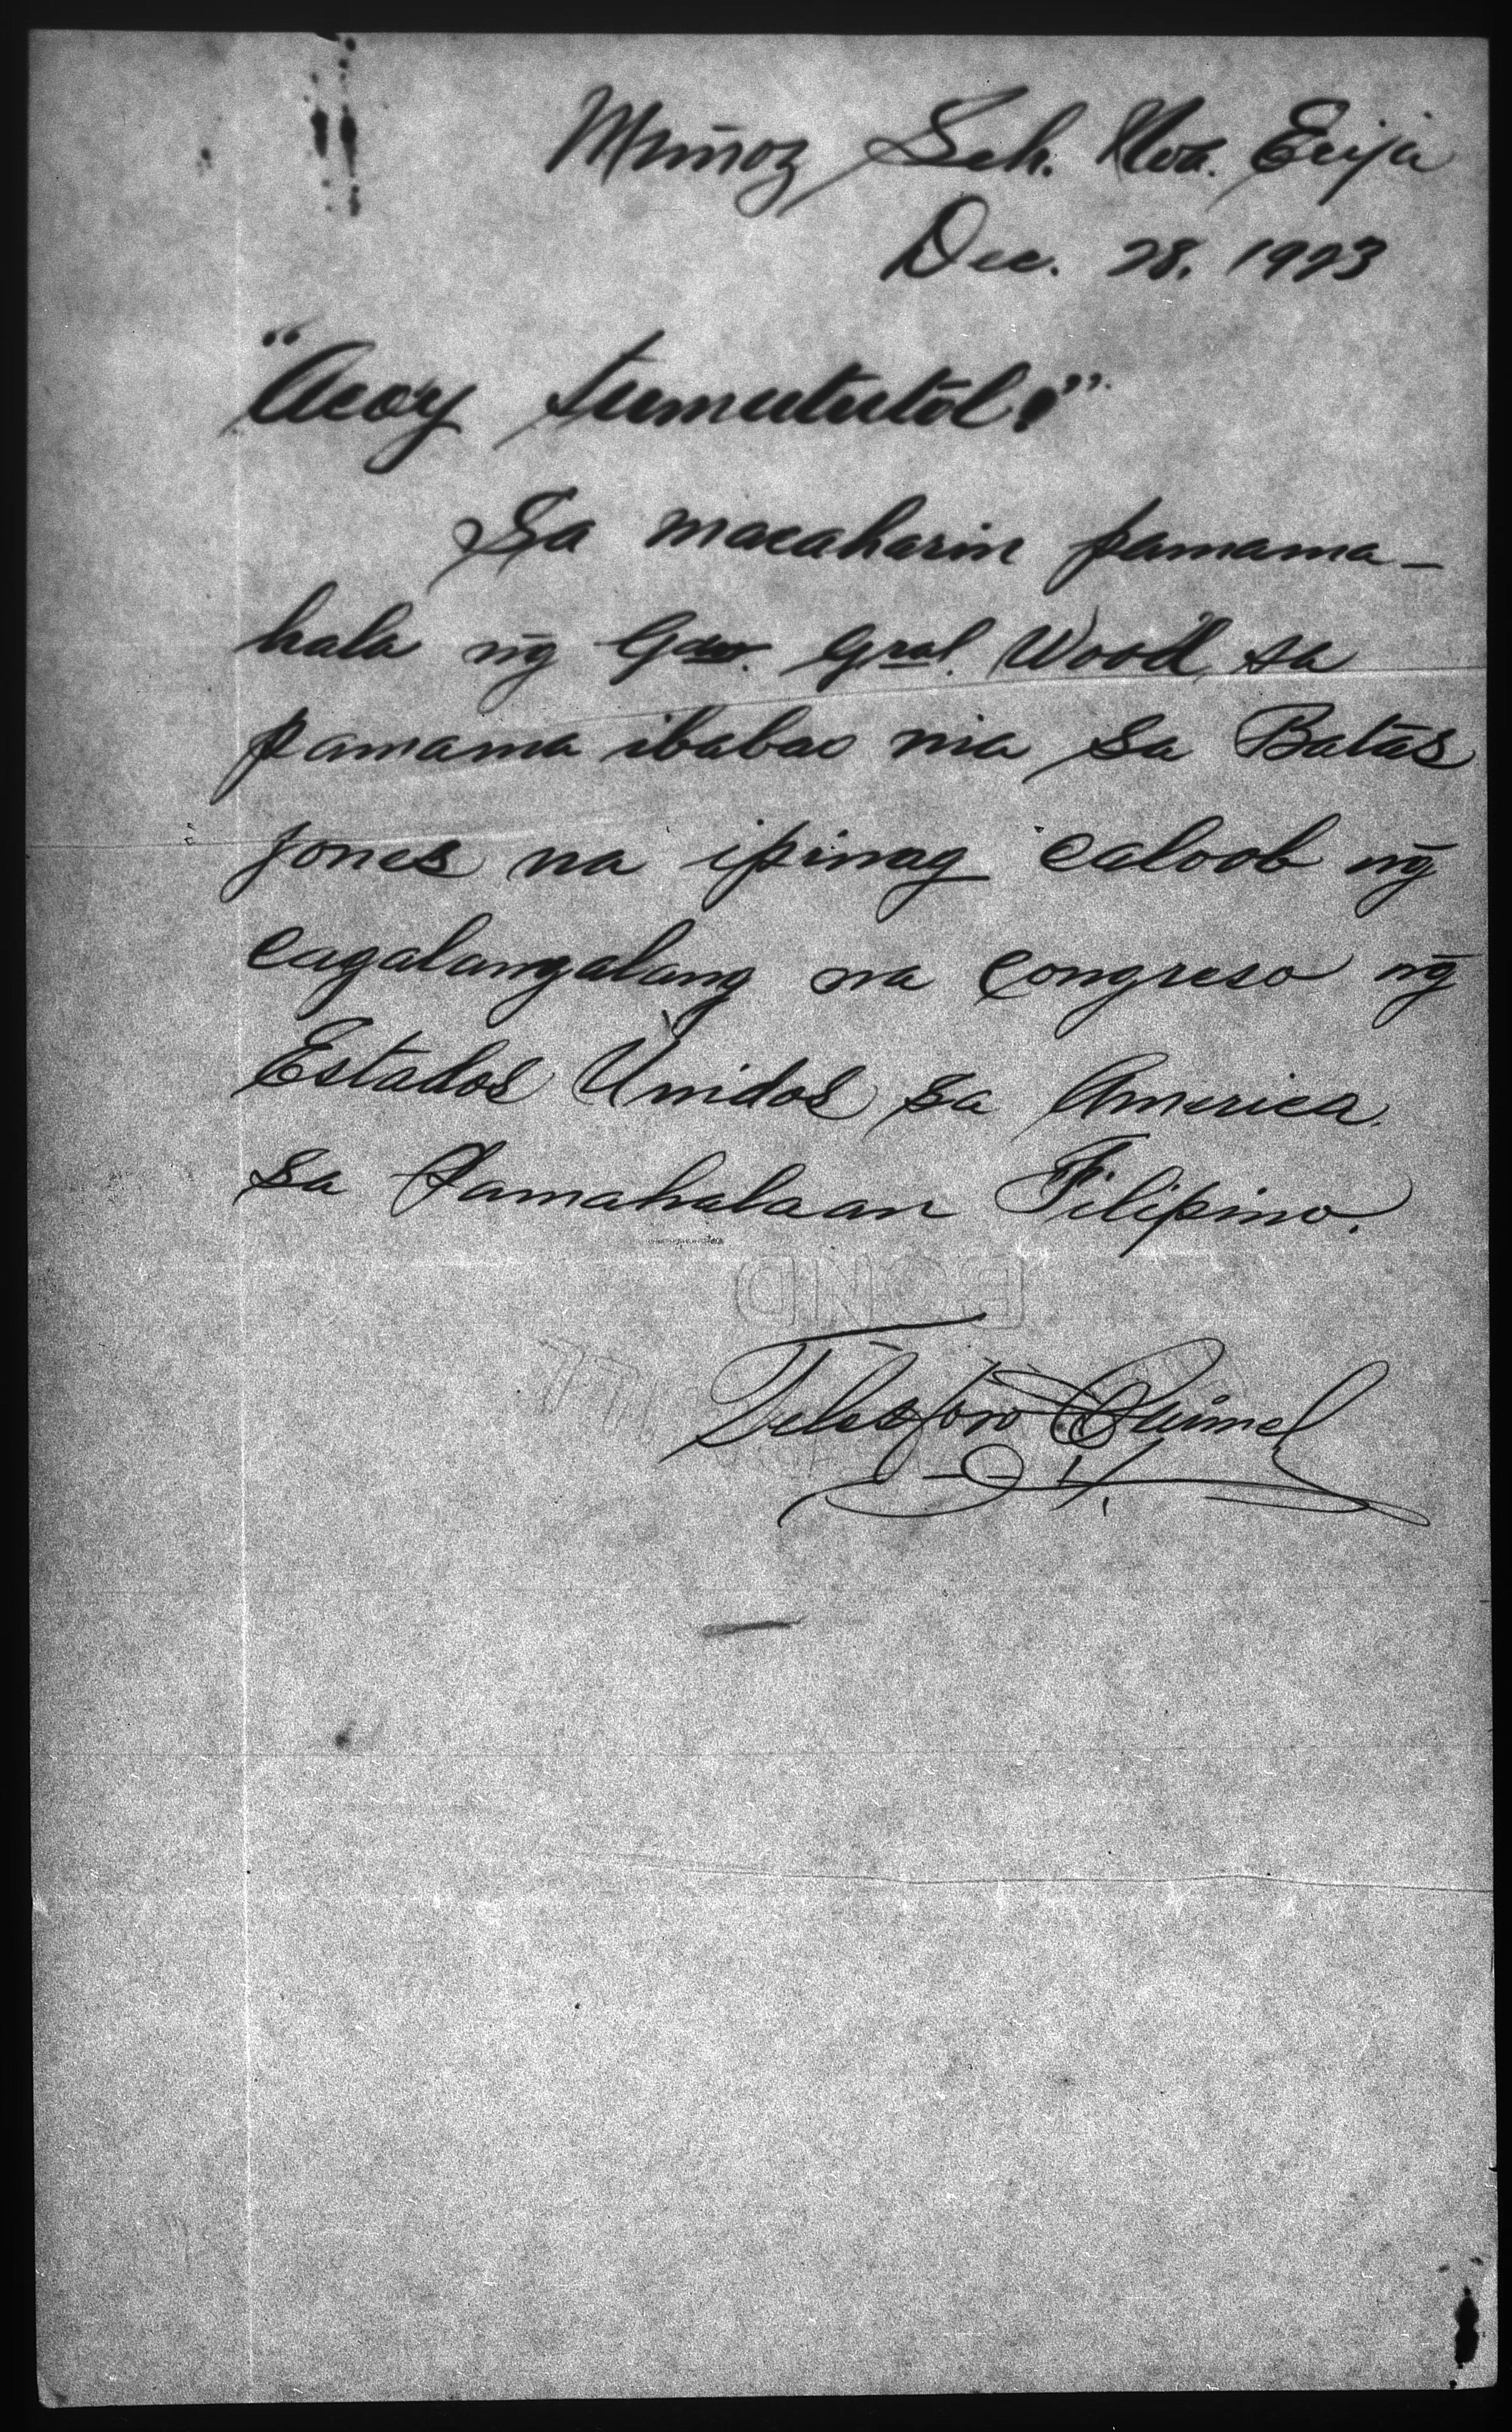 Muñoz Sch. Nva. Ecija
Dec. 28, 1923
"Acoy tumututol!"
Sa macaharin pamama-
hala ng̃ Gov. Gral. Wood, sa
pamama ibabao nia sa Batas
Jones na ipinag caloob ng̃
cagalangalang na Congreso ng̃
Estados Unidos sa America,
sa Pamahalaan Filipino.
BOND
Telesforo